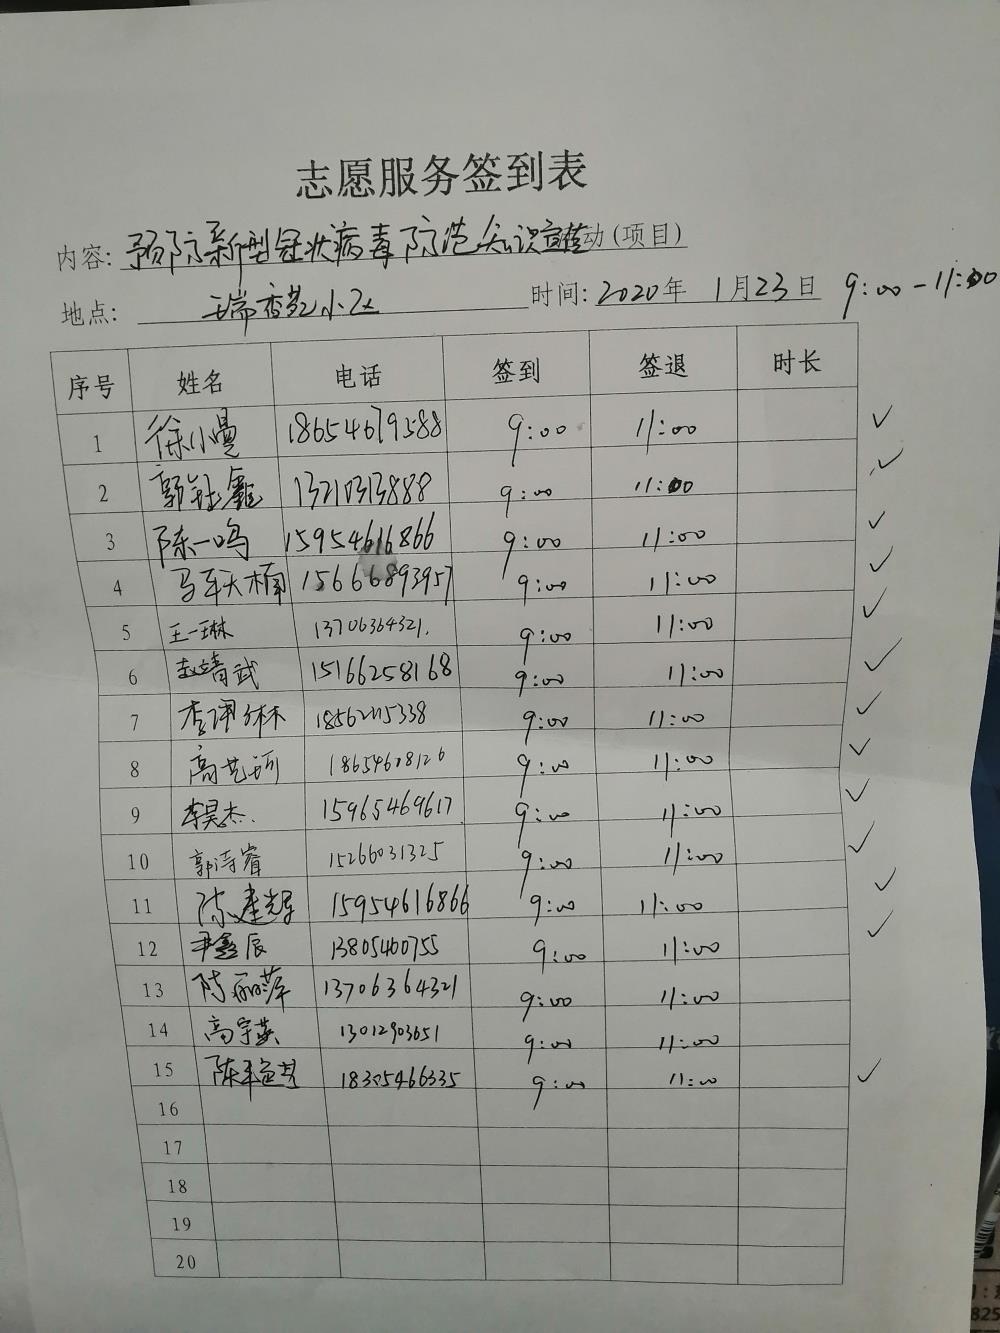 志愿服务签到表
内容: 预防新型冠状病毒防范知识宣传动(项目)
地点: 瑞香苑小区 时间: 2020年 1月23日 9:00-11:00
序号 姓名 电话 签到 签退 时长
1 徐小曼 18654679588 9:00 11:00 ✓
2 郭钰鑫 13210313888 9:00 11:00 ✓
3 陈一鸣 15954616866 9:00 11:00 ✓
4 马天楠 15666893957 9:00 11:00 ✓
5 王一琳 13706364321. 9:00 11:00 ✓
6 赵靖武 15166258168 9:00 11:00 ✓
7 李 林 18562115338 9:00 11:00 ✓
8 高艺珂 18654608126 9:00 11:00 ✓
9 李昊杰. 15965469617 9:00 11:00 ✓
10 郭诗睿 15266031325 9:00 11:00 ✓
11 陈建辉 15954616866 9:00 11:00 ✓
12 尹鑫辰 13805460755 9:00 11:00 ✓
13 陈丽萍 13706364321 9:00 11:00
14 高宇燕 13012903651 9:00 11:00
15 陈 18305466335 9:00 11:00 ✓
16
17
18
19
20
825